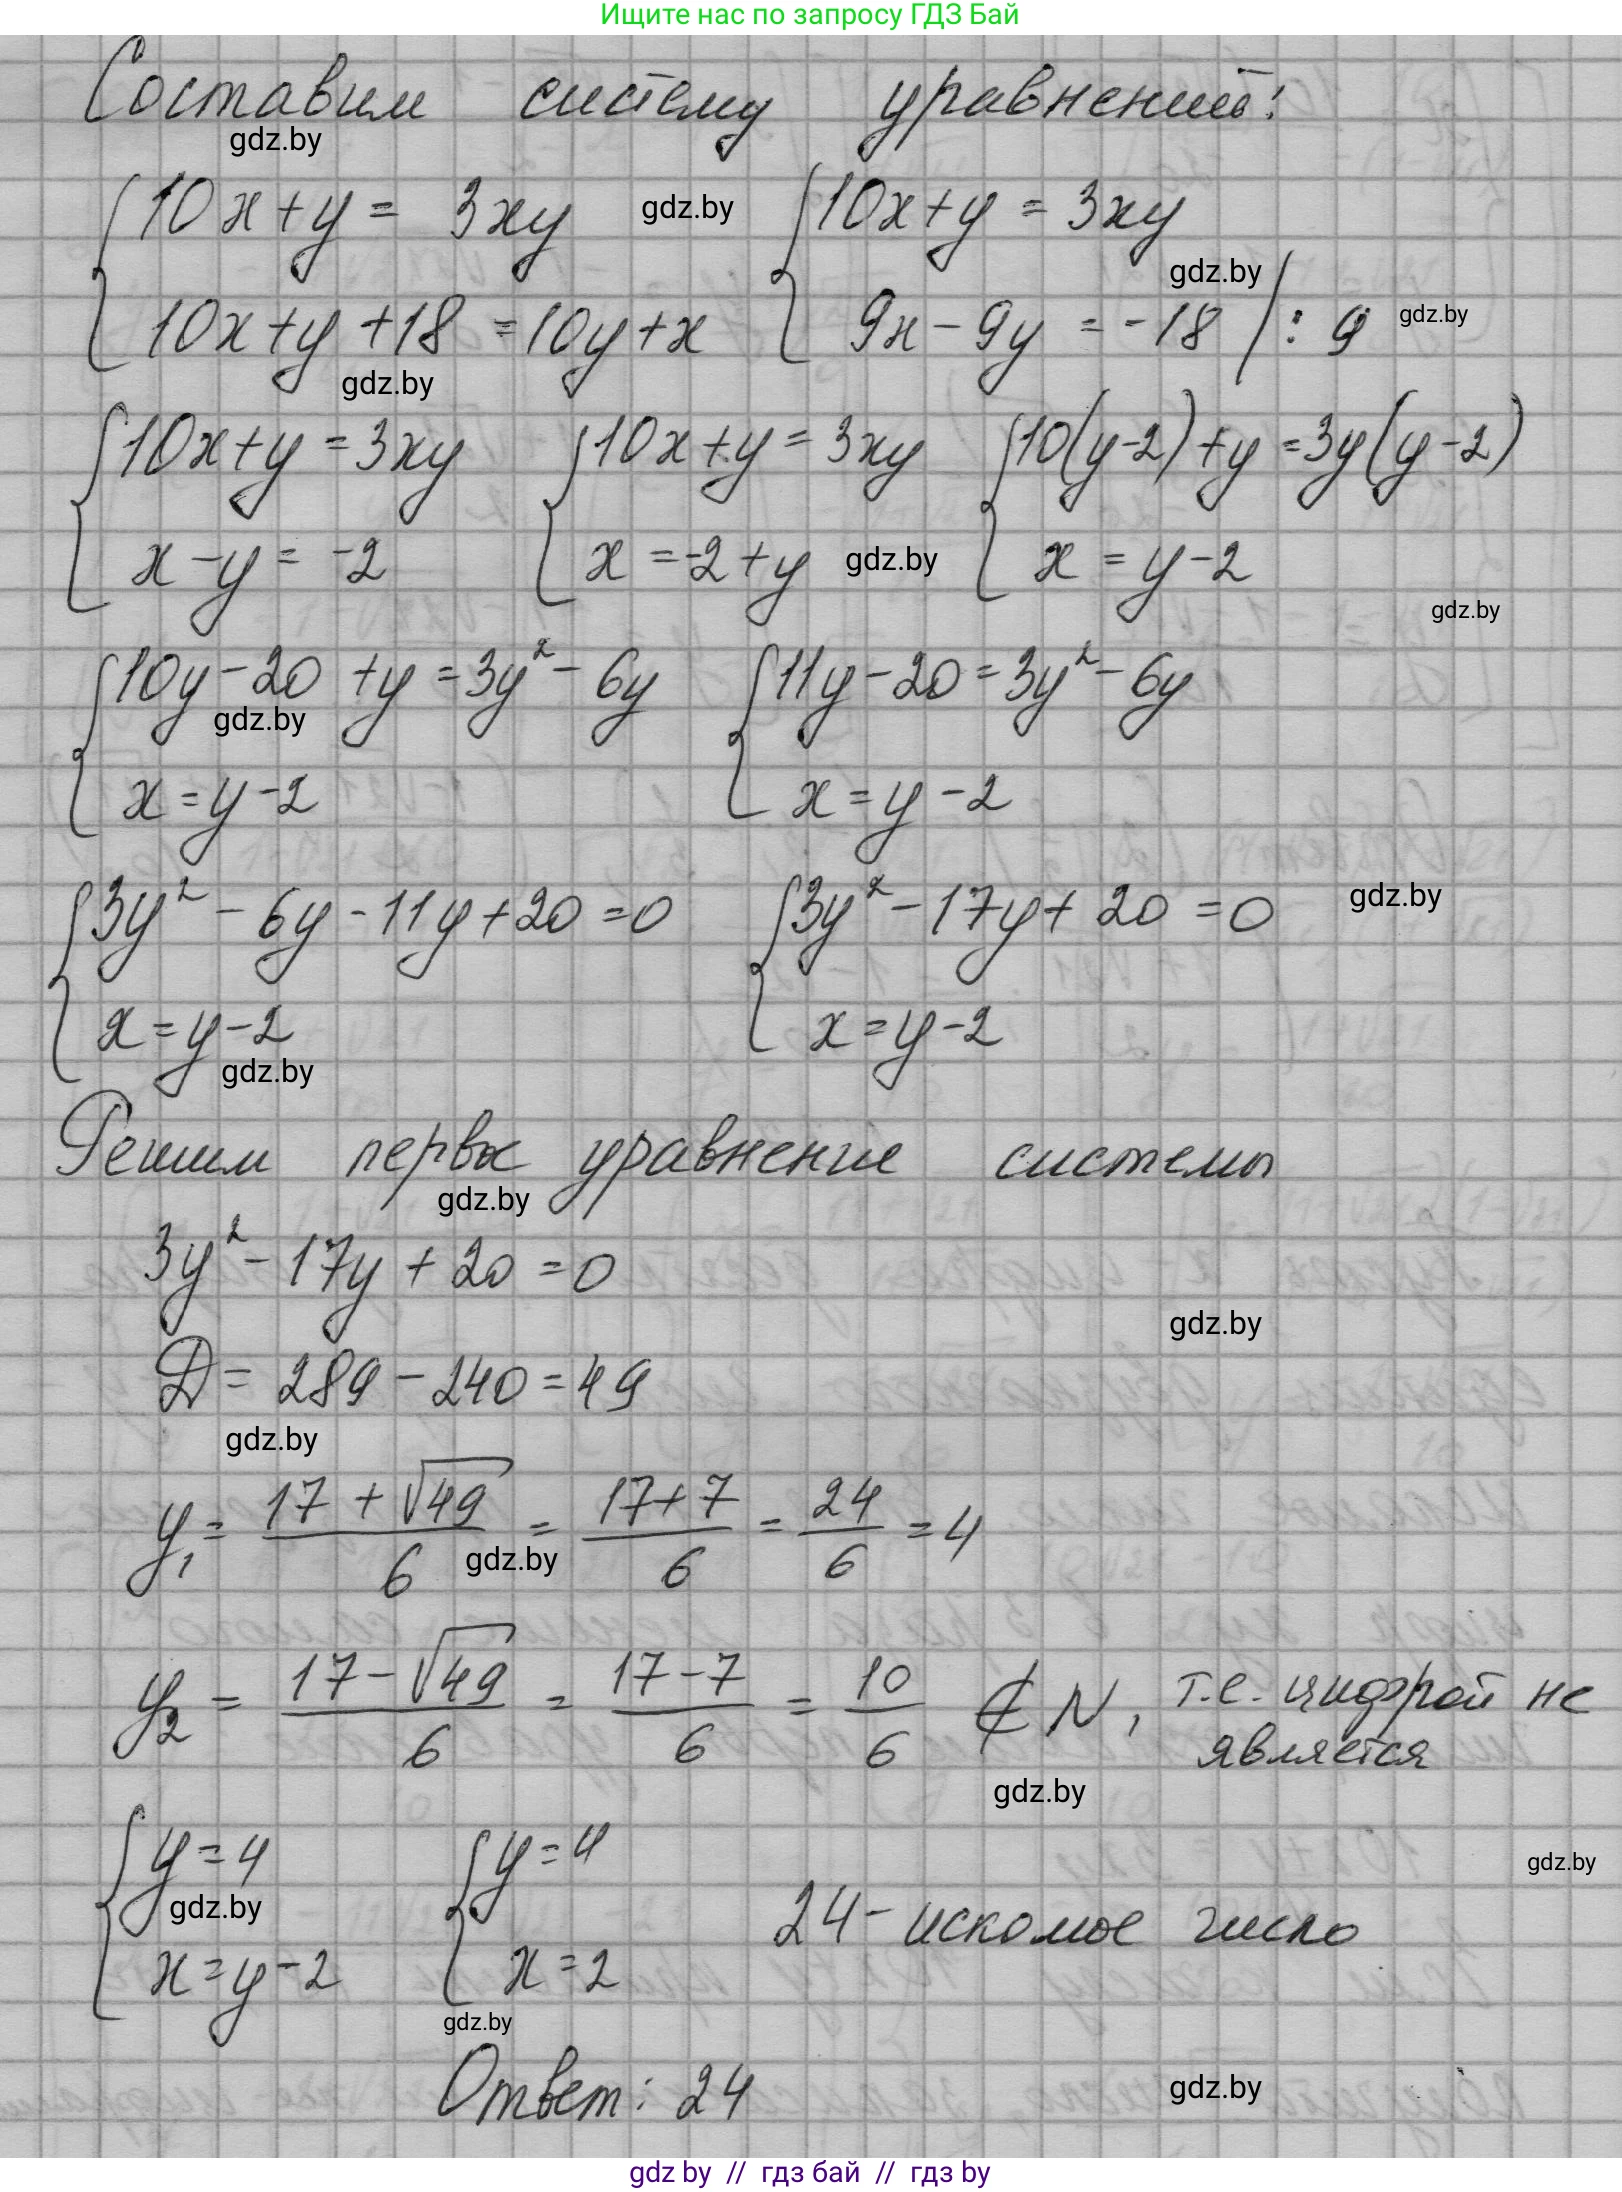 Ищите нас по запросу ГДЗ Бай
Составим систему уравнений:
gdz.by
{10x+y = 3xy gdz.by {10x+y = 3xy
gdz.by
10x+y+18 = 10y+x 9x-9y = -18 | : 9 gdz.by
gdz.by
{10x+y = 3xy {10x+y = 3xy {10(y-2)+y = 3y(y-2)
x-y = -2 x = -2+y gdz.by x = y-2
gdz.by
{10y-20+y = 3y²-6y {11y-20 = 3y²-6y
gdz.by
x = y-2 x = y-2
{3y²-6y-11y+20 = 0 {3y²-17y+20 = 0 gdz.by
x = y-2 x = y-2
gdz.by
Решим первое уравнение системы
gdz.by
3y²-17y+20 = 0
gdz.by
D = 289-240 = 49
gdz.by
y₁ = (17+√49)/6 = (17+7)/6 = 24/6 = 4
gdz.by
y₂ = (17-√49)/6 = (17-7)/6 = 10/6 ∉ N, т.е. цифрой не
является
gdz.by
{y = 4 {y = 4
gdz.by
gdz.by
24 - искомое число
x = y-2 x = 2
gdz.by
Ответ: 24
gdz.by
gdz by // гдз бай // гдз by